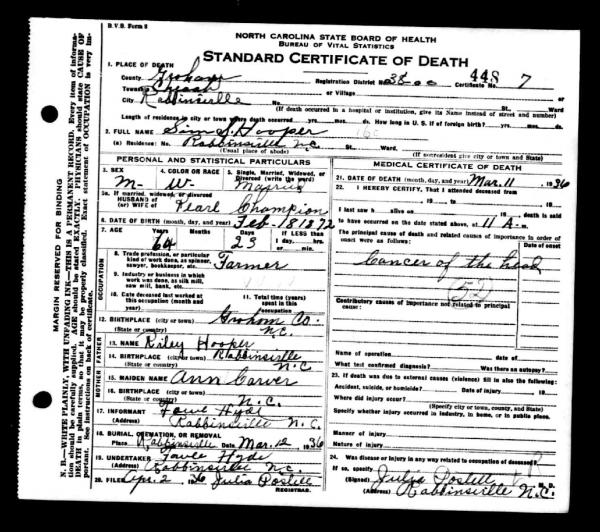 B.V.S. Form 8
NORTH CAROLINA STATE BOARD OF HEALTH
BUREAU OF VITAL STATISTICS
STANDARD CERTIFICATE OF DEATH
1. PLACE OF DEATH
County Graham Registration District No. 38-00 Certificate No. 448 7
Township or Village
Robbinsville No. St. Ward
(If death occurred in a hospital or institution, give its Name instead of street and number)
Length of residence in city or town where death occurred yrs. mos. ds. How long in U. S. if of foreign birth? yrs. mos. ds.
2. FULL NAME Sim S. Hooper 160
(a) Residence: No. Robbinsville N.C. St. Ward
(Usual place of abode) (If nonresident give city or town and State)
PERSONAL AND STATISTICAL PARTICULARS
3. SEX
M-
4. COLOR OR RACE
W-
5. Single, Married, Widowed, or Divorced (write the word)
Married
5a. If married, widowed, or divorced
HUSBAND of
(or) WIFE of Pearl Champion
6. DATE OF BIRTH (month, day, and year) Feb-18 1872
7. AGE Years Months Days If LESS than
64 23 1 day, hrs.
or min.
OCCUPATION
8. Trade, profession, or particular kind of work done, as spinner, sawyer, bookkeeper, etc. Farmer
9. Industry or business in which work was done, as silk mill, saw mill, bank, etc.
10. Date deceased last worked at this occupation (month and year)
11. Total time (years) spent in this occupation
12. BIRTHPLACE (city or town) Graham Co.
(State or country) N.C.
FATHER
13. NAME Riley Hooper
14. BIRTHPLACE (city or town) Robbinsville
(State or country) N.C
MOTHER
15. MAIDEN NAME Ann Carver
16. BIRTHPLACE (city or town)
(State or country) N.C.
17. INFORMANT Hyde
(Address) Robbinsville N.C.
18. BURIAL, CREMATION, OR REMOVAL
Place Robbinsville Date Mar. 12 1936
19. UNDERTAKER Hyde
(Address) Robbinsville N.C.
20. FILED Apr. 2, 1936 Julia Postell
REGISTRAR.
MEDICAL CERTIFICATE OF DEATH
21. DATE OF DEATH (month, day, and year) Mar. 11 1936
22. I HEREBY CERTIFY, That I attended deceased from
19 , to , 19
I last saw h alive on , 19 , death is said
to have occurred on the date stated above, at 11 A- m.
The principal cause of death and related causes of importance in order of onset were as follows:
Date of onset
Cancer of the head
52
Contributory causes of importance not related to principal cause:
Name of operation Date of
What test confirmed diagnosis? Was there an autopsy?
23. If death was due to external causes (violence) fill in also the following:
Accident, suicide, or homicide? Date of injury 19
Where did injury occur?
(Specify city or town, county, and State)
Specify whether injury occurred in industry, in home, or in public place.
Manner of injury
Nature of injury
24. Was disease or injury in any way related to occupation of deceased?
If so, specify
(Signed) Julia Postell M. D.
(Address) Robbinsville N.C.
MARGIN RESERVED FOR BINDING
N. B.—WRITE PLAINLY, WITH UNFADING INK—THIS IS A PERMANENT RECORD. Every item of information should be carefully supplied. AGE should be stated EXACTLY. PHYSICIANS should state CAUSE OF DEATH in plain terms, so that it may be properly classified. Exact statement of OCCUPATION is very important. See instructions on back of certificate.